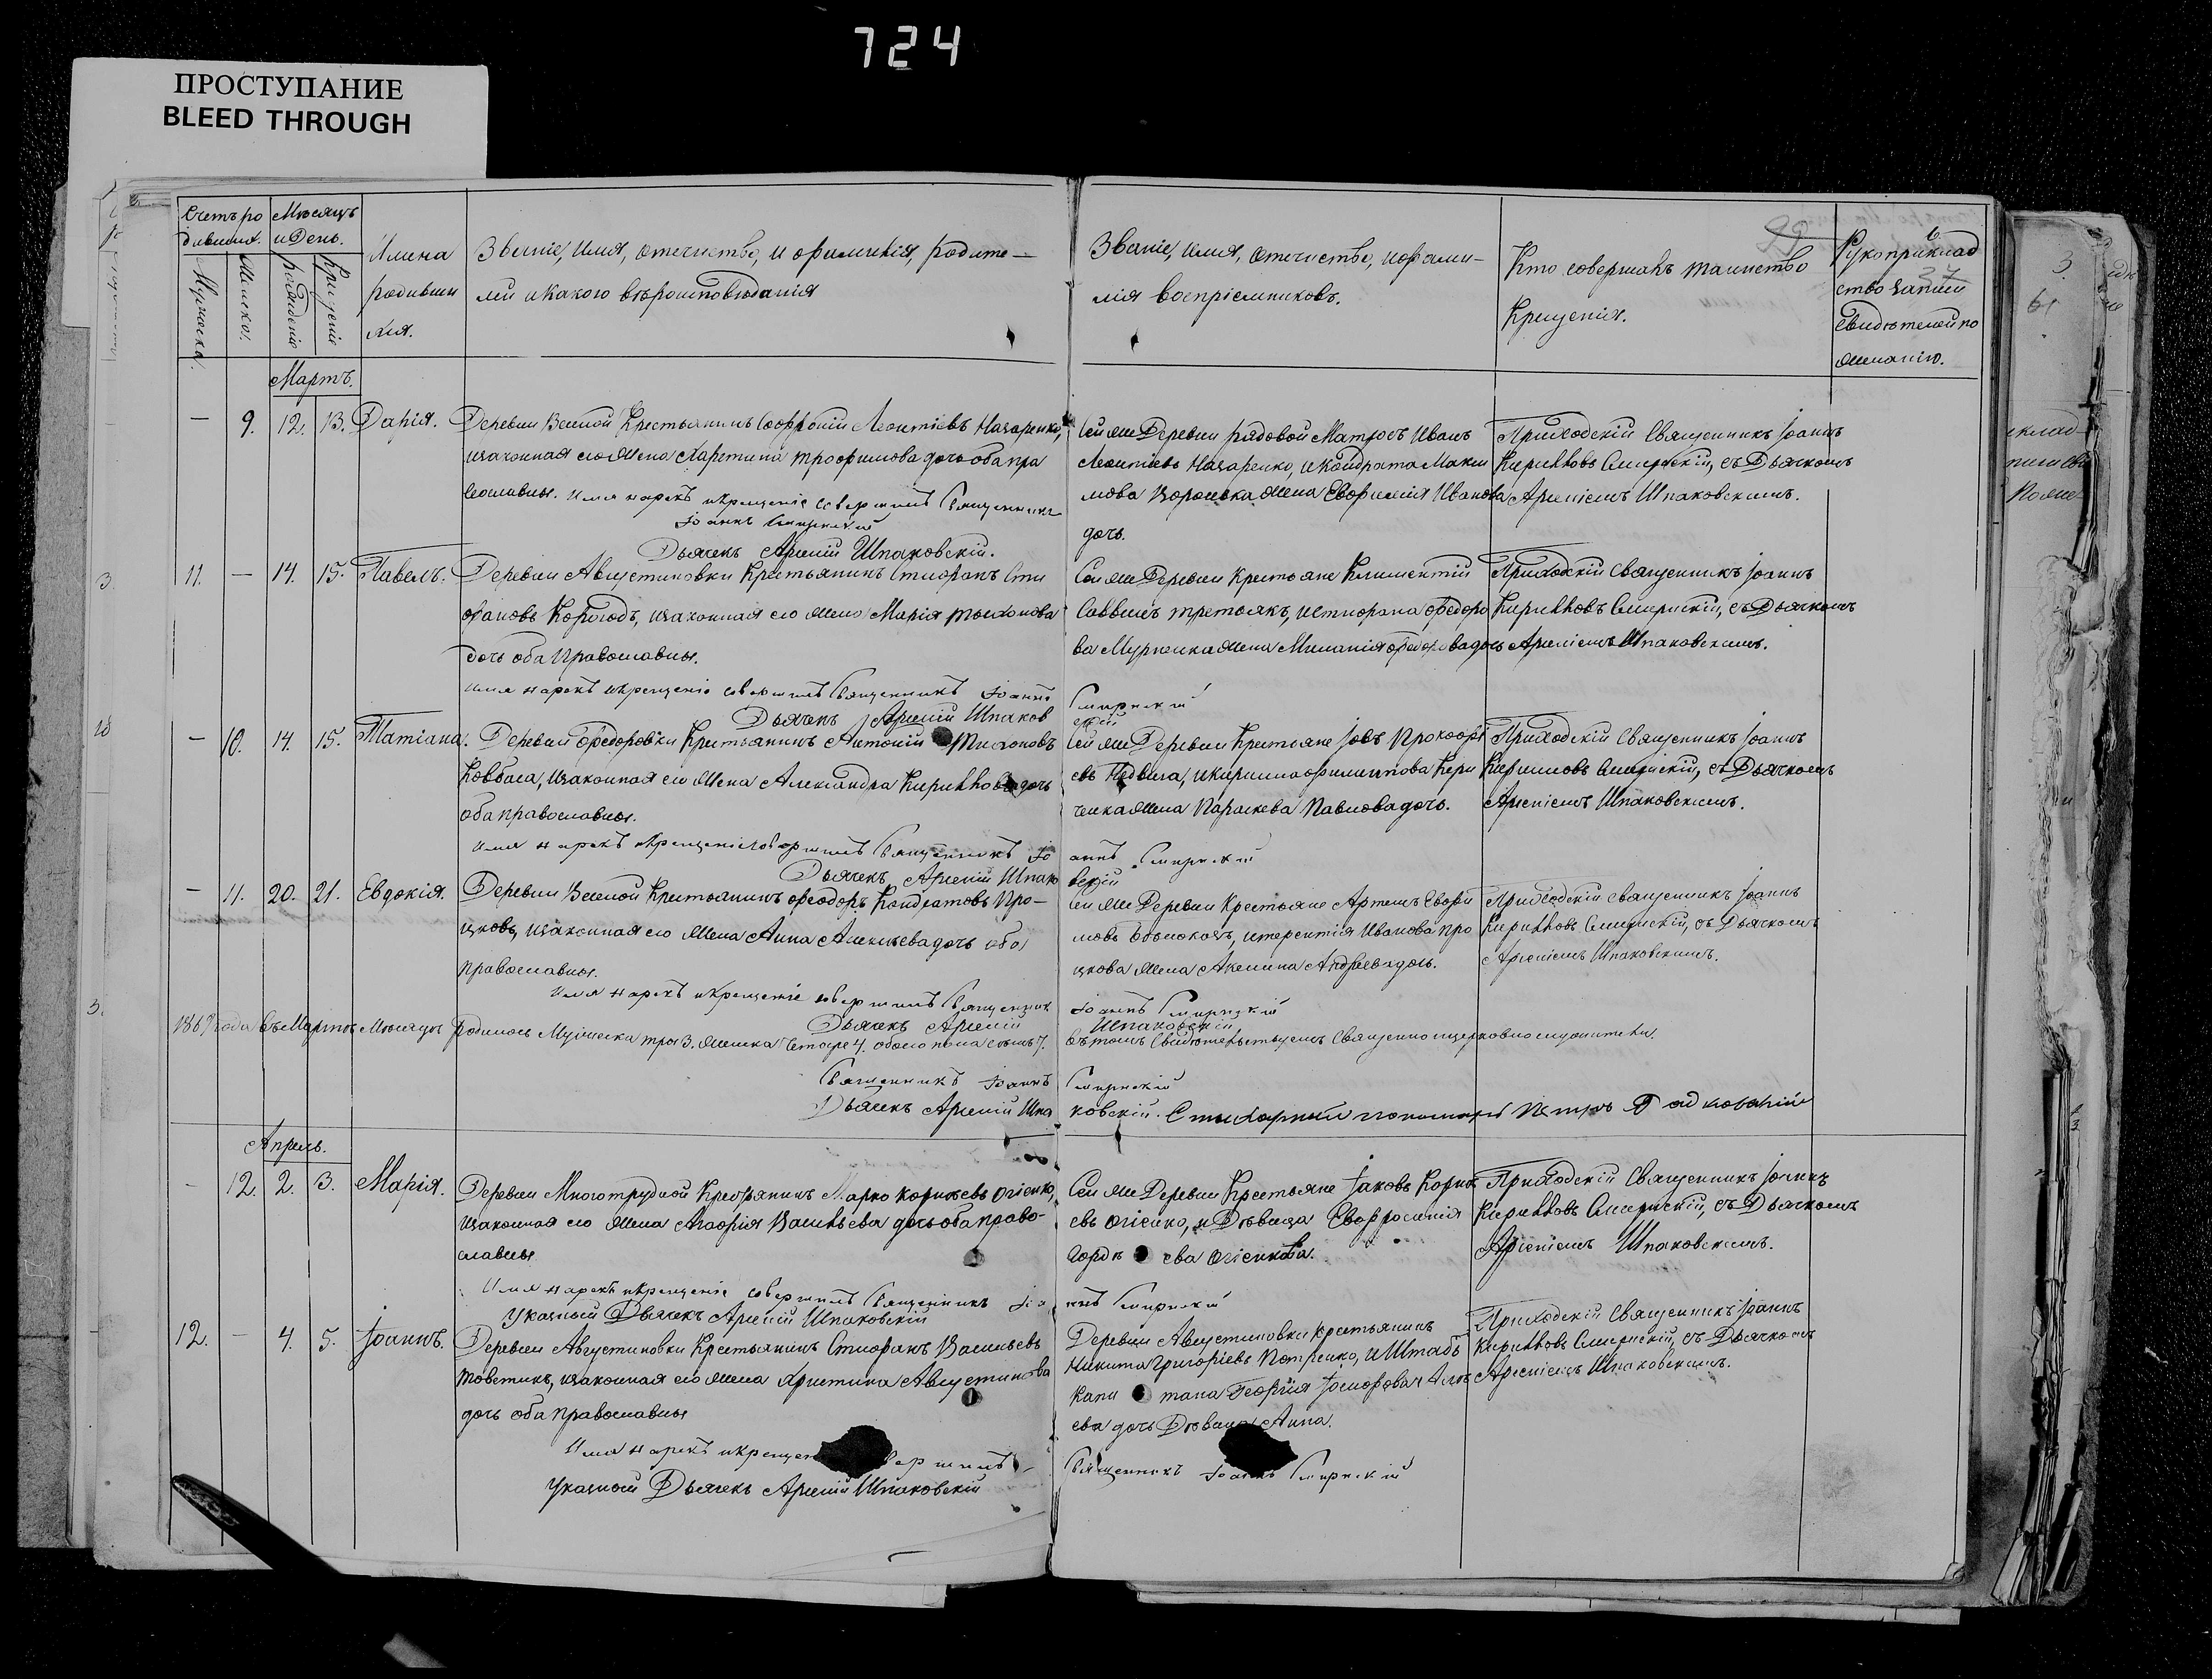 724
ПРОСТУПАНИЕ
BLEED THROUGH
Счетъ ро
дившихъ.
Мѣсяцъ
и День.
Мужеска.
Женско.
рожденія
Крещенія
Имена
родивши
хся.
Званіе, имя, отечество, и фамилія, родите–
лей и какого вѣроисповѣданія
Званіе, имя, отечество, и фами–
лія воспріемниковъ.
Кто совершалъ таинство
Крещенія.
6.
37
Рукоприклад
ство записи
свидѣтелей по
желанію.
Мартъ.
— 9. 12. 13. Дарія.
Деревни Веселой Крестьянинъ Софроній Леонтіевъ Назаренко,
изаконная его жена Харетина трофимова дочь оба пра
вославны. Имя нарекъ икрещеніе совершилъ Священникъ
Іоаннъ Смирнскій
Дьячекъ Арсеній Шпаковскій.
Сей же Деревни рядовой Матросъ Иванъ
Леонтіевъ Назаренко, и Кондрата Макси
мова Воронька жена Евфимія Иванова
дочь.
Приходскій Священникъ Іоаннъ
Кирилловъ Смирнскій, съ Дьячкомъ
Арсеніемъ Шпаковскимъ.
11. — 14. 15. Павелъ.
Деревни Августиновки Крестьянинъ Стефанъ Сте
фановъ Корогодъ, изаконная его жена Марія тихонова
дочь оба Православны.
имя нарекъ икрещеніе совершилъ Священникъ Іоаннъ
Смирнскій
Дьячекъ Арсеній Шпаков
скій
Сей же Деревни Крестьяне Климентій
Саввичъ третьякъ, истефана федоро
ва Мурненка жена Миланія федорова дочь
Приходскій Священникъ Іоаннъ
Кирилловъ Смирнскій, съ Дьячкомъ
Арсеніемъ Шпаковскимъ.
— 10. 14. 15. Татіана.
Деревни Федоровки Крестьянинъ Антоній Тихоновъ
Ковбаса, изаконная его жена Александра Кириллова дочь
оба православны.
имя нарекъ икрещеніе совершилъ Священникъ Іо
аннъ Смирнскій
Дьячекъ Арсеній Шпако
вскій
Сей же Деревни Крестьяне Іовъ Прокофі
евъ, и Кирилла филиппова Кири
ченка жена Параскева Павлова дочь.
Приходскій Священникъ Іоаннъ
Кирилловъ Смирнскій, съ Дьячкомъ
Арсеніемъ Шпаковскимъ.
— 11. 20. 21. Евдокія.
Деревни Веселой Крестьянинъ Феодоръ Кондратовъ Про–
цковъ, изаконная его жена Анна Алексѣева дочь оба
православны.
имя нарекъ икрещеніе совершилъ Священник
Іоаннъ Смирнскій
Дьячекъ Арсеній
Шпаковскій
Сей же Деревни Крестьяне Артемъ Евфи
мовъ, итерентія Иванова про
цкова жена Акелина Андреева дочь.
Приходскій Священникъ Іоаннъ
Кирилловъ Смирнскій, съ Дьячкомъ
Арсеніемъ Шпаковскимъ.
года въ Мартѣ Мѣсяцѣ родилось Мужеска три 3. женска Четыре 4. обоего пола семь 7.
Въ томъ Свидѣтельствуемъ Священно и церковнослужители.
Священникъ Іоаннъ Смирнскій
Дьячекъ Арсеній Шпа
ковскій. Стихарный пономарь Петръ
Апрель.
— 12. 2. 3. Марія.
Деревни Многотрудной Крестьянинъ Марко Корнѣевъ Огіенко,
изаконная его жена Агафія Васильева дочь оба право–
славны
Имя нарекъ икрещеніе совершилъ Священникъ Іоа
ннъ Смирнскій
Указный Дьячекъ Арсеній Шпаковскій
Сей же Деревни Крестьяне Іаковъ Корнѣ
евъ Огіенко, и Дѣвица Евфросинія
Гордѣ ева Огіенкова.
Приходскій Священникъ Іоаннъ
Кирилловъ Смирнскій, съ Дьячкомъ
Арсеніемъ Шпаковскимъ.
12. — 4. 5. Іоаннъ.
Деревни Августиновки Крестьянинъ Стефанъ Васильевъ
товстикъ, изаконная его жена Христина Августинова
дочь оба православны
Имя нарекъ икрещен вершилъ
Священникъ Іоаннъ Смирнскій
Указной Дьячекъ Арсеній Шпаковскій
Деревни Августиновки крестьянинъ
Никита Григоріевъ Петренко, и Штабъ
Капи тана Георгія
ева дочь Дѣвица Анна.
Приходскій Священникъ Іоаннъ
Кирилловъ Смирнскій, съ Дьячкомъ
Арсеніемъ Шпаковскимъ.